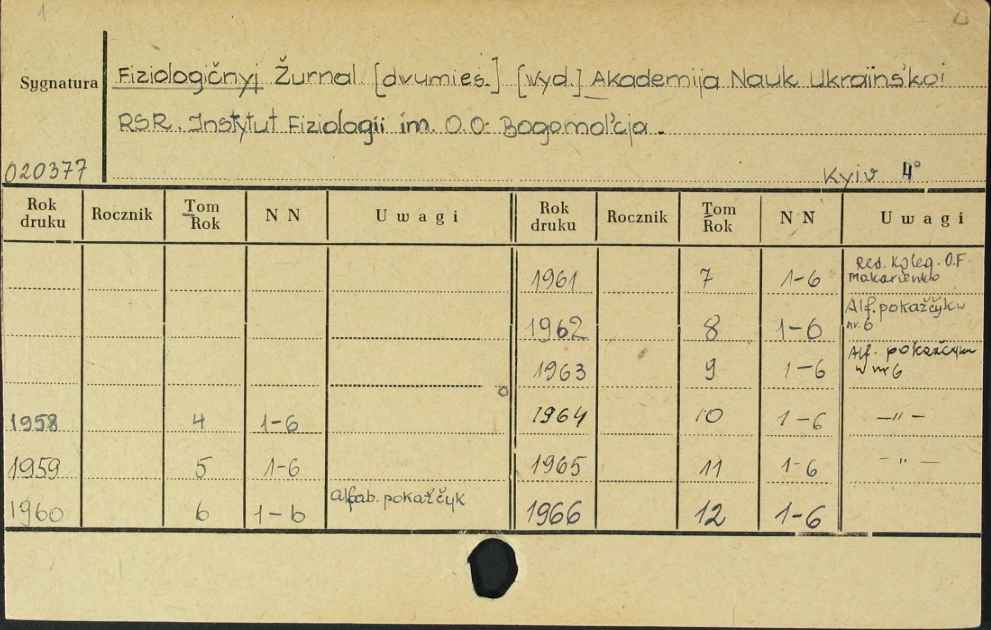 1
Sygnatura
Fiziologičnyj Žurnal [dwumies.] [wyd.] Akademija Nauk Ukraïns'koï
RSR. Instytut Fiziologii im. O.O. Bogomol'cja.
020377
Kyiv 4°
Rok druku Rocznik Tom Rok N N Uwagi Rok druku Rocznik Tom Rok N N Uwagi
1961 7 1-6 Red. Koleg. O.F. Makarienko
1962 8 1-6 Alf. pokažčyku nr. 6
1963 9 1-6 Alf. pokažčyk w nr 6
1958 4 1-6 1964 10 1-6 —"—
1959 5 1-6 1965 11 1-6 —"—
1960 6 1-6 Alfab. pokažčyk 1966 12 1-6